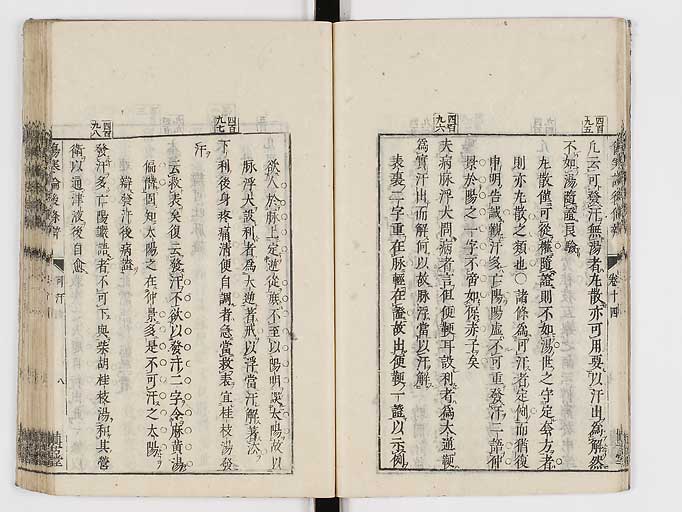 四百九五
凡云可發汗無湯者丸散亦可用要以汗出為解然
不如湯隨證良驗
丸散僅可從權隨證則不如湯世之守定套方者
則亦丸散之類也○諸條為可汗者定例而猶復
申明告誡觀汗多亡陽陽虛不可重發汗二證仲
景於陽之一字不啻如保赤子矣
四百九六
夫病脉浮大問病者言但便鞕耳設利者為大逆鞕
為實汗出而解何以故脉浮當以汗解
表裏二字重在脉輕在證故出便鞕一證以示例
欲人於脉上定逆從庶不至以陽明誤太陽故以
脉浮大設利者為大逆著戒以浮當汗解著法
四百九七
下利後身疼痛清便自調者急當救表宜桂枝湯發
汗
云救表矣復云發汗不欲以發汗二字令麻黃湯
偏僭固知太陽之在仲景多是不可汗之太陽
辯發汗後病證
四百九八
發汗多亡陽讝語者不可下與柴胡桂枝湯和其營
衛以通津液後自愈
傷寒論後條辨
可汗
八
卷十四